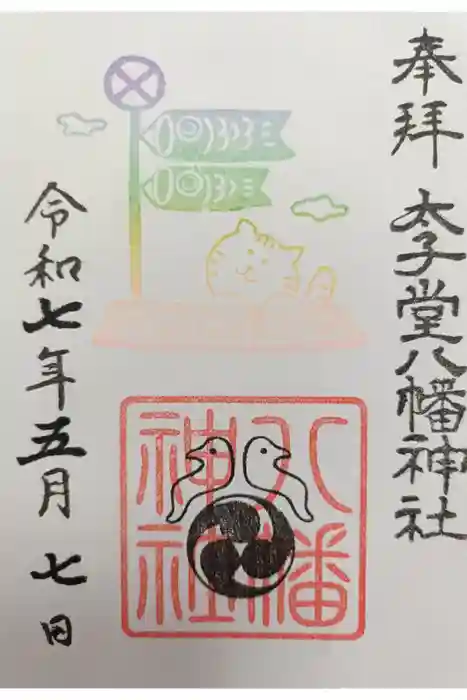 奉拝 太子堂八幡神社
八幡
神社
令和七年五月七日